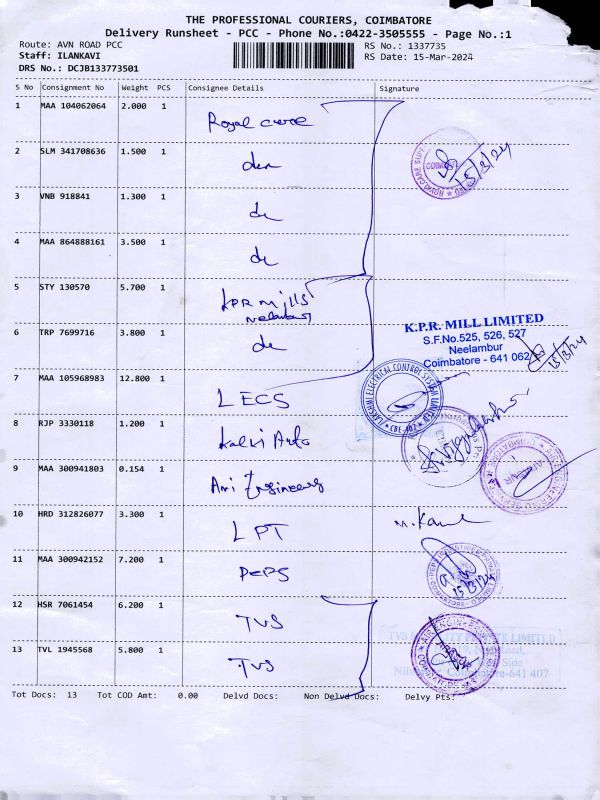 THE PROFESSIONAL COURIERS, COIMBATORE
Delivery Runsheet - PCC - Phone No.:0422-3505555 - Page No.:1
Route: AVN ROAD PCC RS No.: 1337735
Staff: ILANKAVI RS Date: 15-Mar-2024
DRS No.: DCJB133773501
S No Consignment No Weight PCS Consignee Details Signature
1 MAA 104062064 2.000 1 Royal care
2 SLM 341708636 1.500 1
15/3/24
3 VNB 918841 1.300 1 do
4 MAA 864888161 3.500 1 do
5 STY 130570 5.700 1 KPR Mills
Neelambur
K.P.R. MILL LIMITED
S.F.No.525, 526, 527
Neelambur
Coimbatore - 641 062
15/3/24
6 TRP 7699716 3.800 1 do
7 MAA 105968983 12.800 1 LECS
LAKSHMI ELECTRICAL CONTROL SYSTEM LIMITED
8 RJP 3330118 1.200 1 Kalki Auto
9 MAA 300941803 0.154 1 Engineering
10 HRD 312826077 3.300 1 LPT
11 MAA 300942152 7.200 1 PEPS
15/3/24
12 HSR 7061454 6.200 1 TVS
13 TVL 1945568 5.800 1 TVS
Coimbatore-641 407
Tot Docs: 13 Tot COD Amt: 0.00 Delvd Docs: Non Delvd Docs: Delvy Pts: